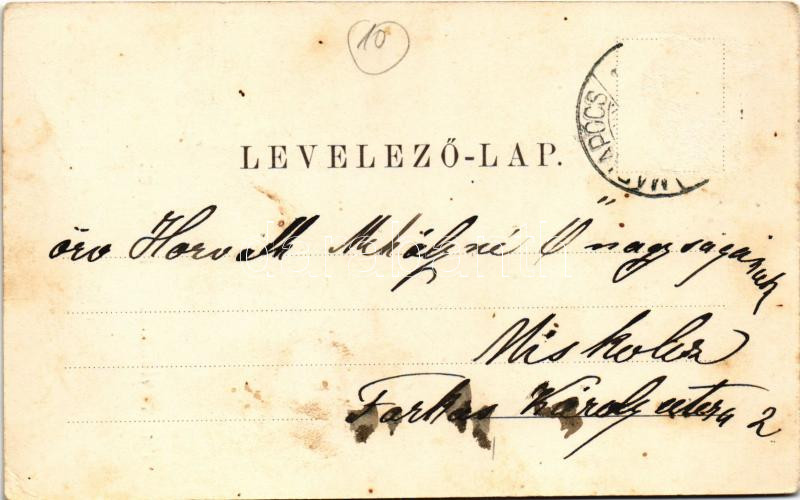 10
MAGLAPÓCS
LEVELEZŐ-LAP.
özv Horváth Mihályné Ő nagyságának
Miskolcz
Farkas Károly utcza 2